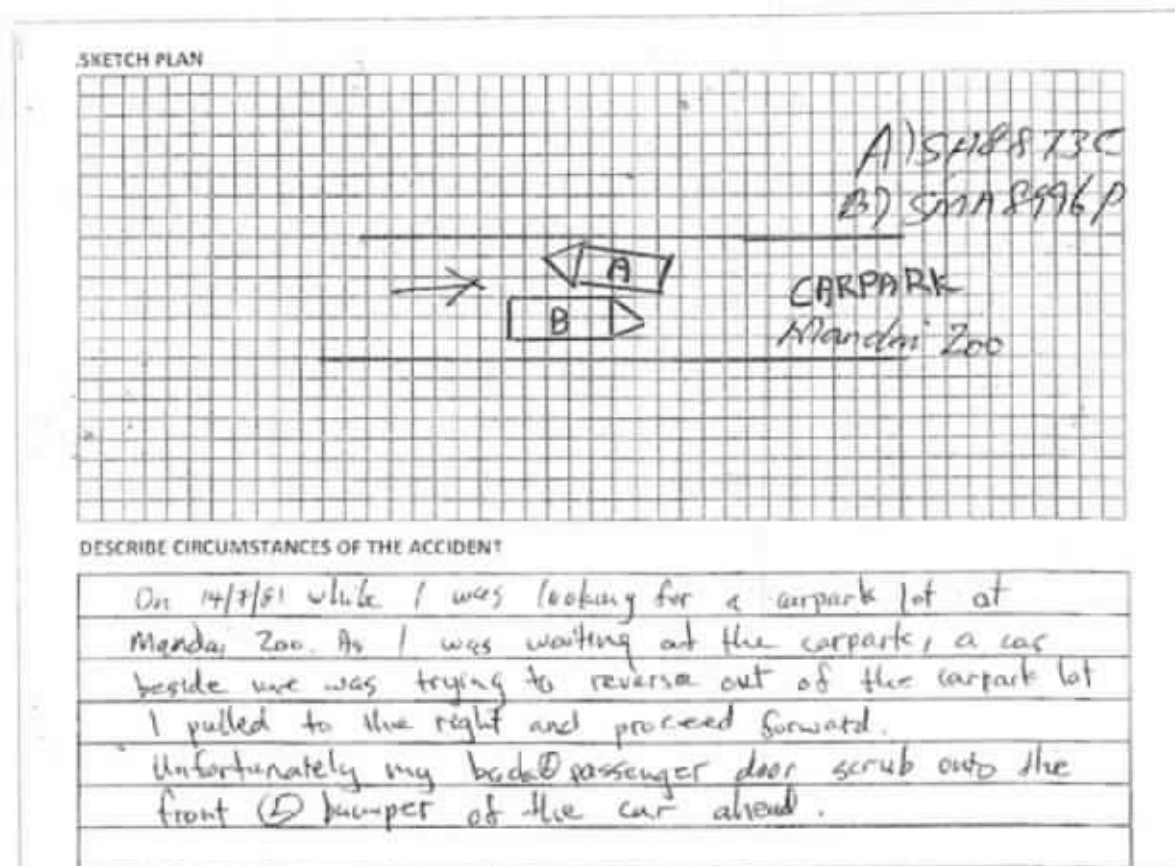 SKETCH PLAN
A) SH8873C
B) SMA8996P
A
CARPARK
B
Mandai Zoo
DESCRIBE CIRCUMSTANCES OF THE ACCIDENT
On 14/7/81 while I was looking for a carpark lot at
Mandai Zoo. As I was waiting at the carpark, a car
beside me was trying to reverse out of the carpark lot
I pulled to the right and proceed forward.
Unfortunately my passenger door scrub onto the
front bumper of the car ahead.